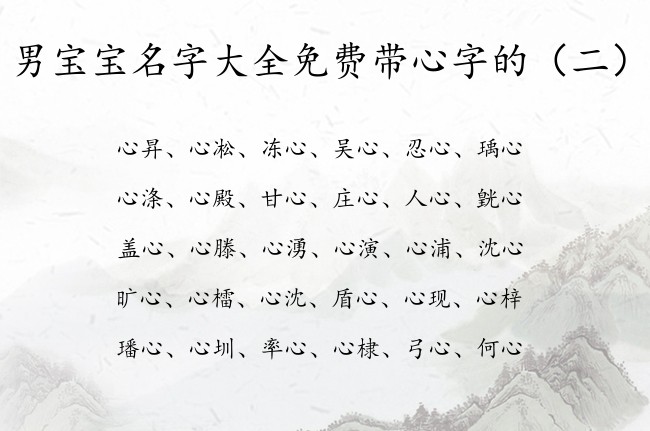 男宝宝名字大全免费带心字的（二）
心昇、心凇、冻心、吴心、忍心、瑀心
心涤、心殿、甘心、庄心、人心、毓心
盖心、心滕、心湧、心演、心浦、沈心
旷心、心檑、心沈、盾心、心现、心梓
璠心、心圳、率心、心棣、弓心、何心